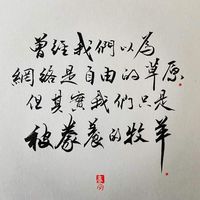 曾經我們以為
網絡是自由的草原
但其實我们只是
被豢養的牧羊